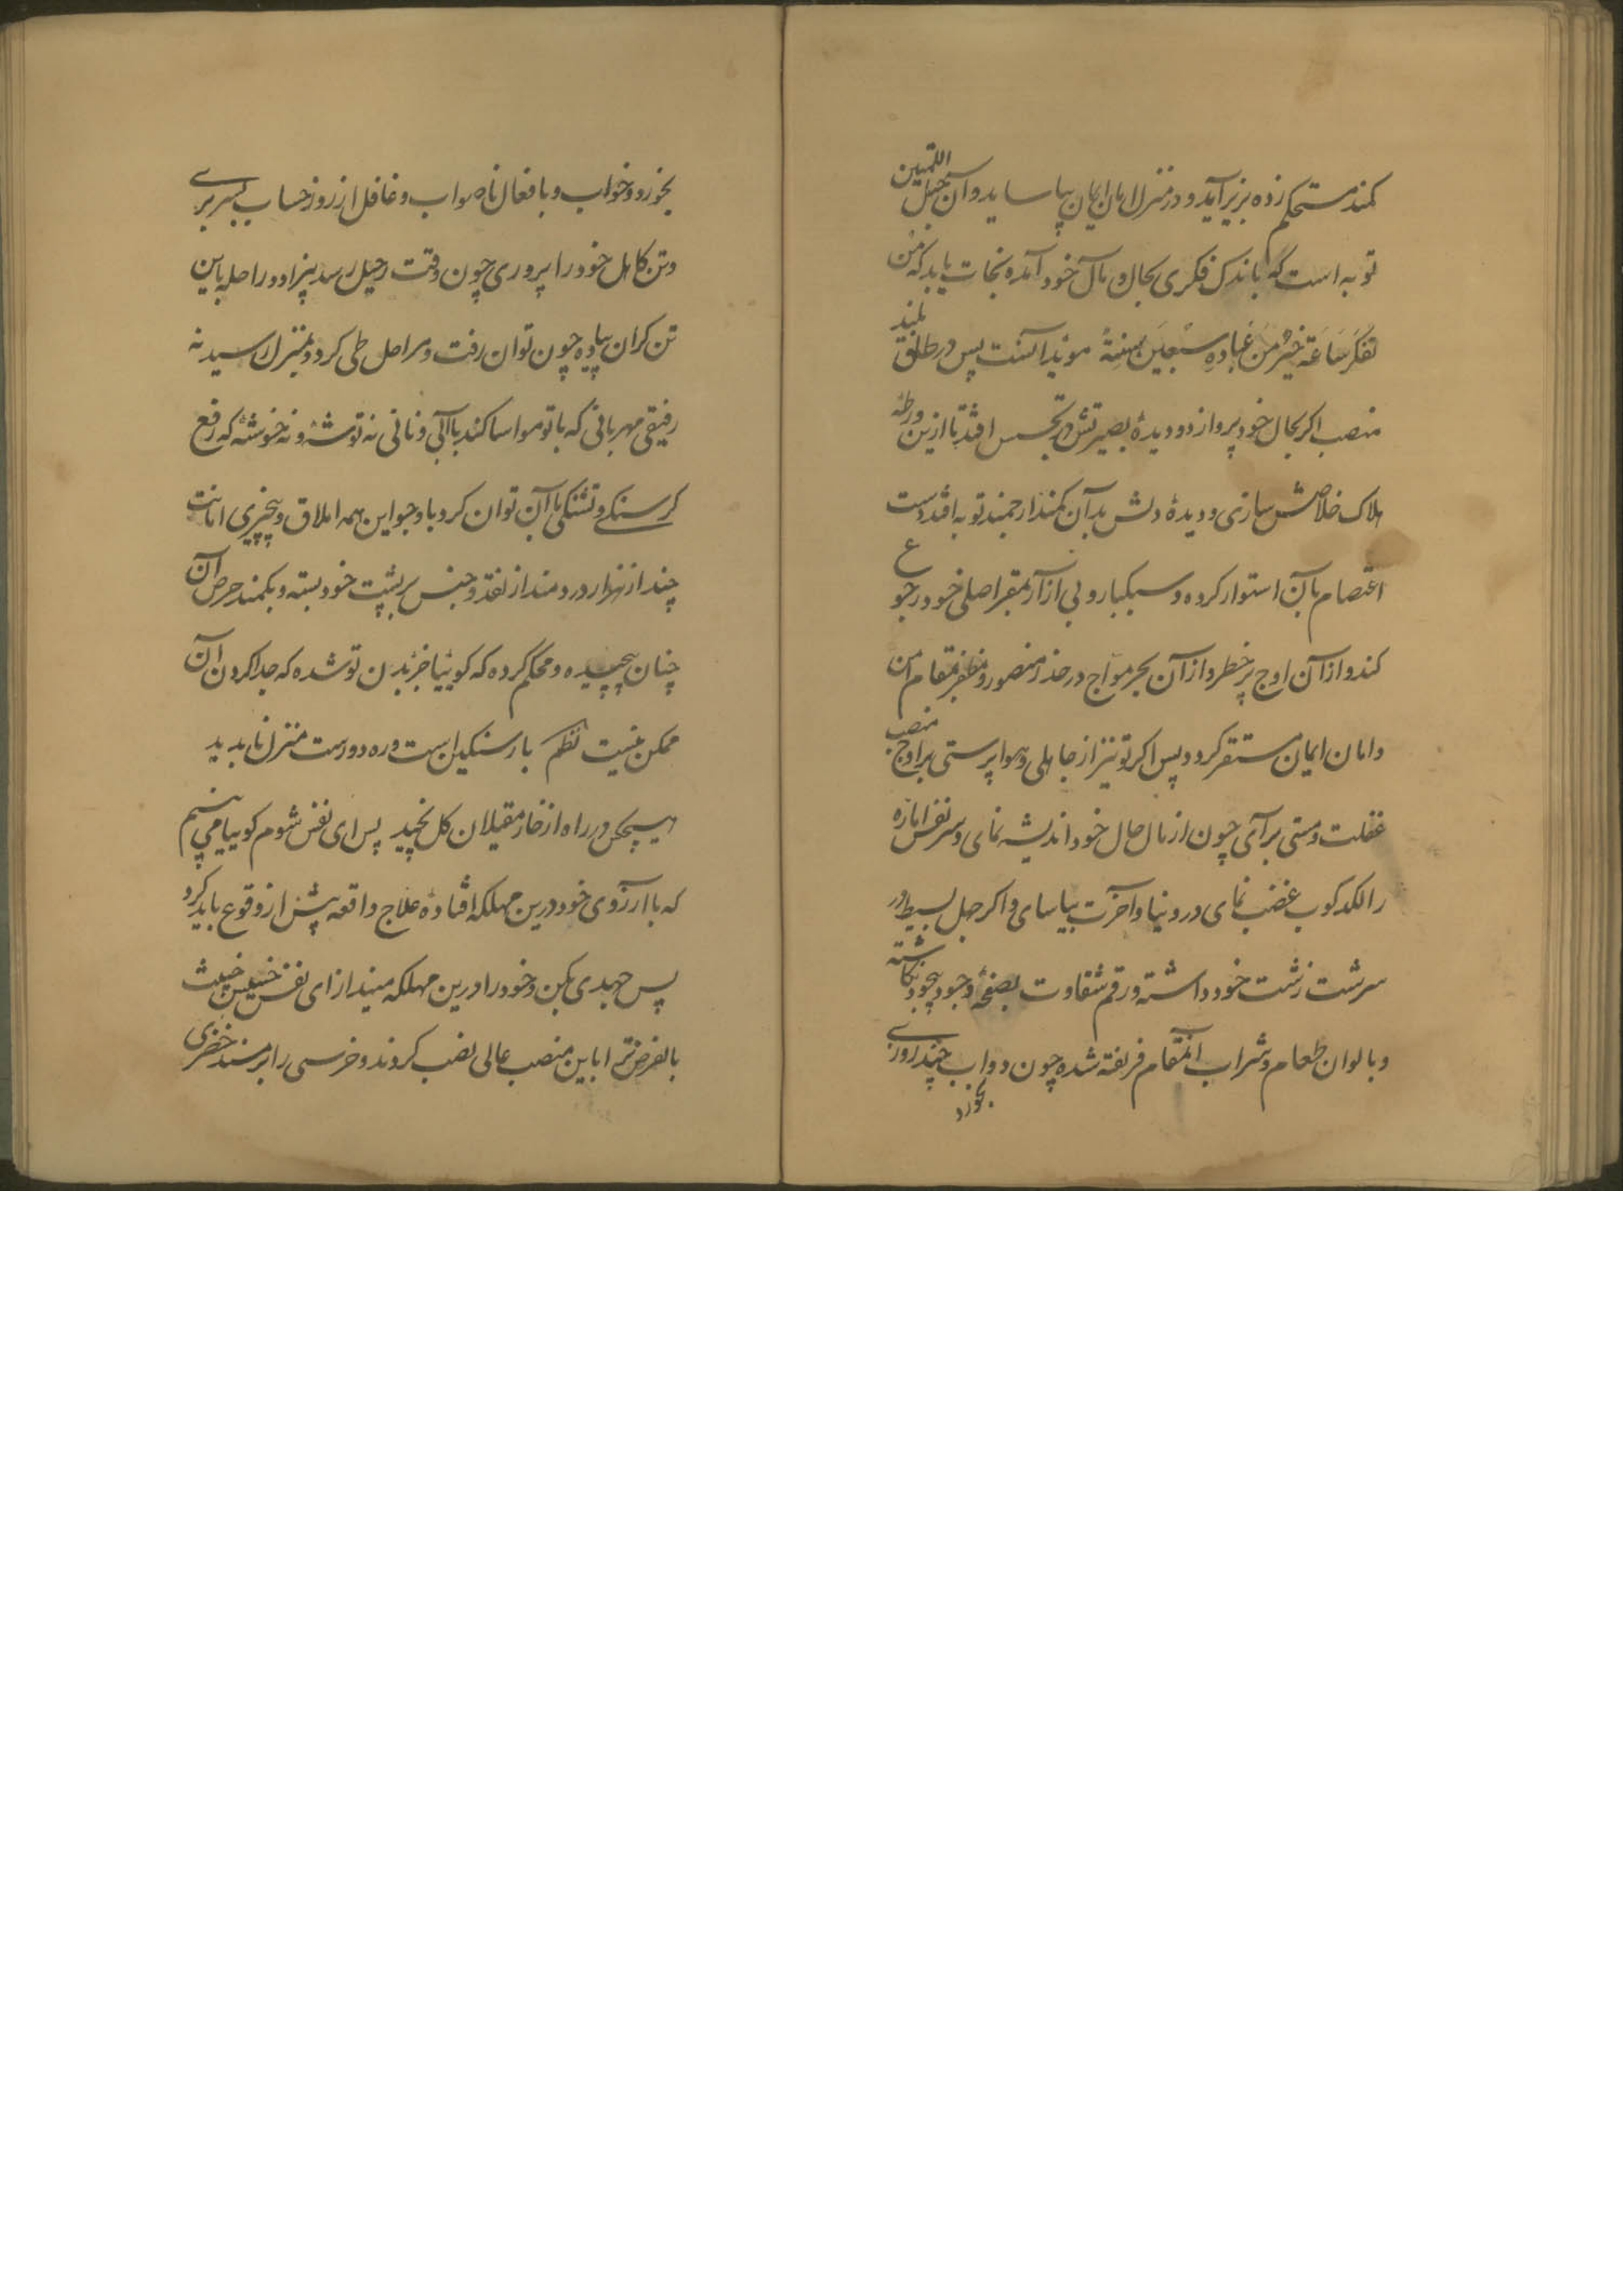 کمند مستحکم زده بزیر آید و در منزل امان ایمان بیاساید و آن حبل المتین
توبه است که باندک فکری بحال و مآل خود آمده نجات یابد که من
تفکر ساعة خیر من عبادة سبعین سنة موید آنست پس در طلق بلند
منصب اکر بحال خود پردازد و دیدهٔ بصیرتش در تجسس افتد تا ازین ورطهٔ
هلاک خلاصش سازی و دیدهٔ دلش بدآن کمند ارجمند توبه افتد دست
اعتصام بآن استوار کرده و سبکبار و بی آزار بمقر اصلی خود رجوع
کند و از آن اوج پر خطر و از آن بحر مواج در حذر منصور و مظفر بمقام امن
و امان ایمان مستقر کردد پس اکر تو نیز از جاهلی و هواپرستی بر اوج منصب
غفلت و مستی برآی چون از مال حال خود اندیشه نمای و سر نفس اماره
را لکدکوب غضب نمای در دنیا و آخرت بیاسای و اکر جهل بسیط در
سرشت زشت خود داشته و رقم شقاوت بصفحهٔ وجود بیجود نکاشته
و بالوان طعام و شراب آنمقام فریفته شده چون دواب چند روزی
بخورد
بخورد و خواب و بافعال ناصواب و غافل از روز حساب بسر بری
و تن کاهل خود را پروری چون وقت رحیل رسد بیزاد و راحله باین
تن کران پیاده چون توان رفت و مراحل طی کرد و بمنزل رسید نه
رفیقی مهربانی که با تو مواسا کند بآبی و نانی نه توشهٔ و نه خوشهٔ که رفع
کرسنکی و تشنکی بآن توان کرد با وجود این همه املاق و بیخبری امانت
چند از هزار دردمند از نقد و جنس بر پشت خود بسته و بکمند حرص آن
چنان پیچیده و محکم کرده که کوییا جزء بدن تو شده که جدا کردن آن
ممکن نیست نظم بار سنکین است و ره دورست منزل ناپدید
هیچکس در راه از خار مغیلان کل نچید پس ای نفس شوم کوییا می بینم
که با آرزوی خود درین مهلکه افتادهٔ علاج واقعه پیش از وقوع باید کرد
پس جهدی بکن و خود را درین مهلکه مینداز ای نفس خسیس خبیث
بالفرض ترا باین منصب عالی نصب کردند و خرسی را بر مسند خضری